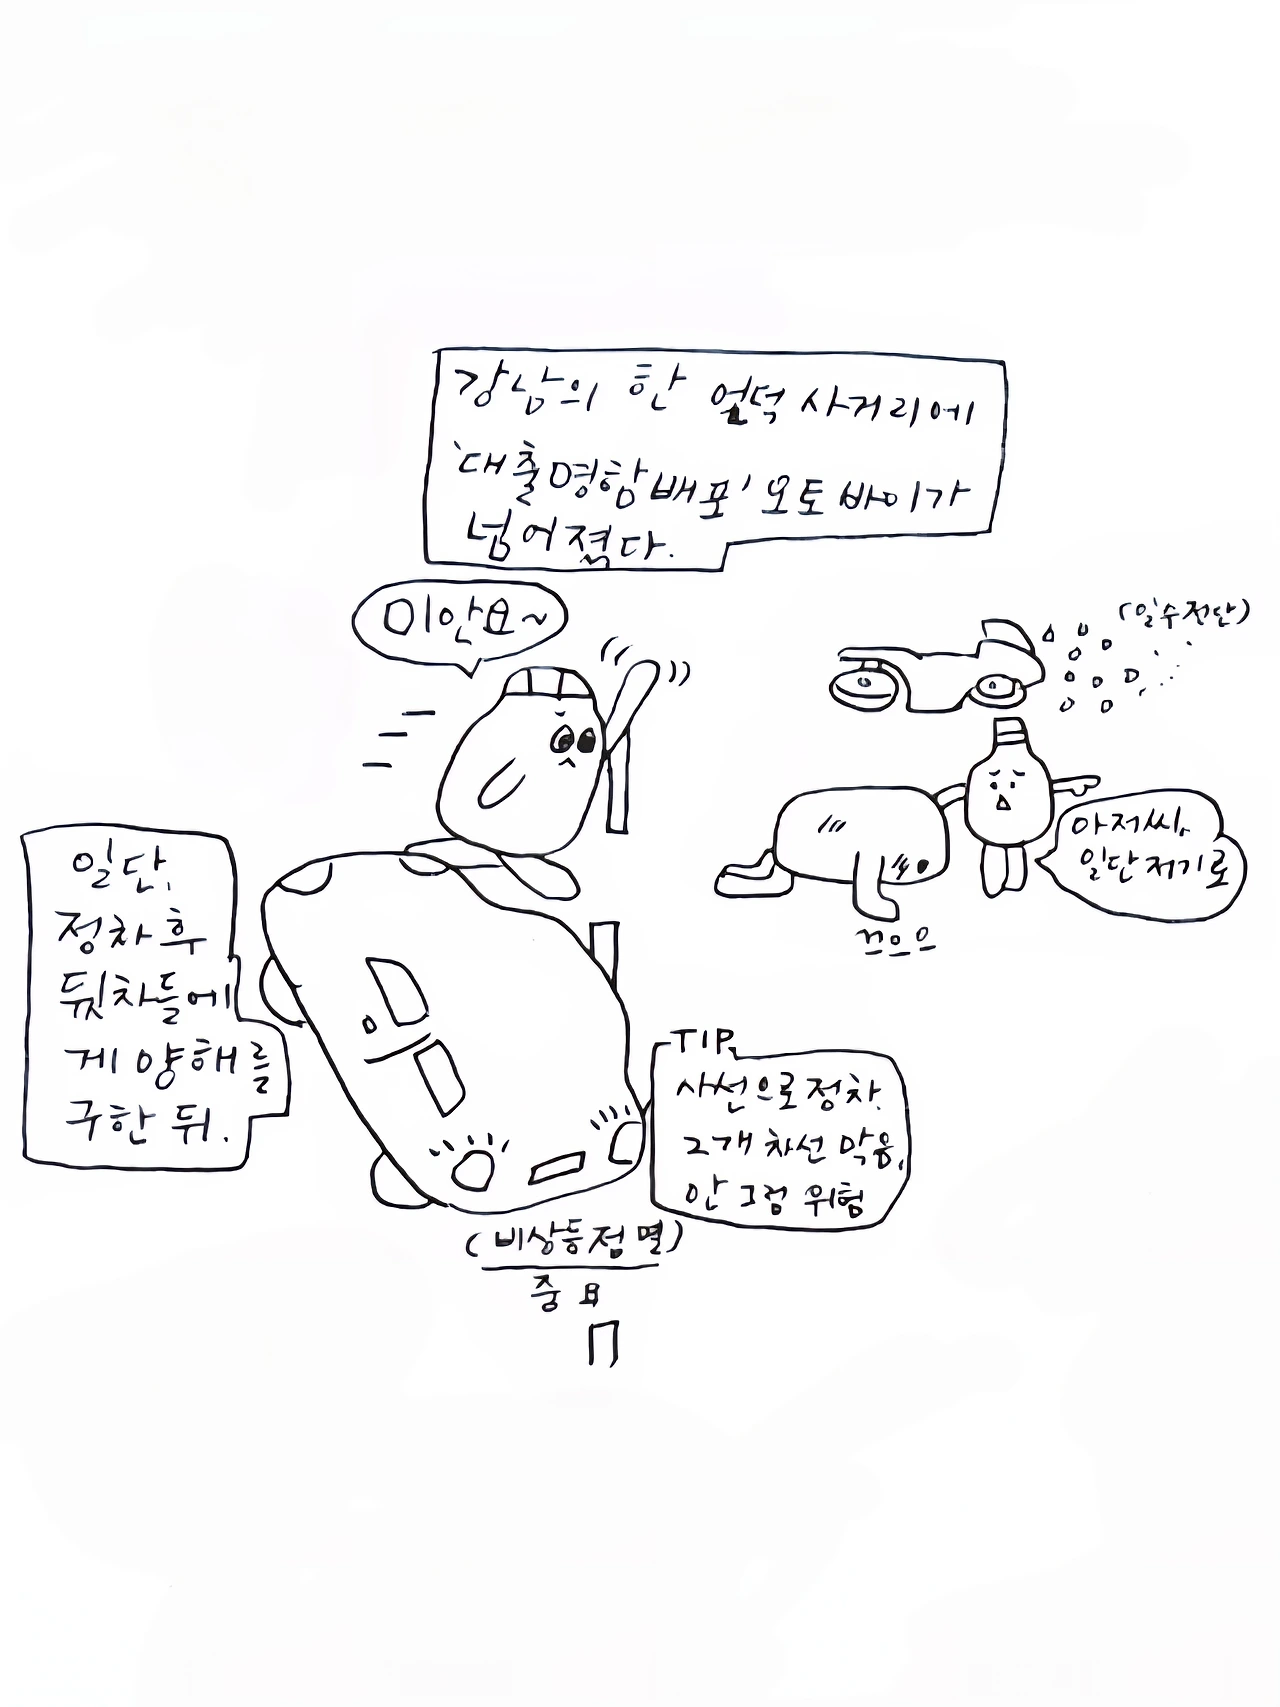 강남의 한 언덕 사거리에
'대출명함배포' 오토바이가
넘어졌다.
미안요~
(일수전단)
아저씨,
일단 저기로
끄으으
일단,
정차 후
뒷차들에
게 양해를
구한 뒤.
TIP.
사선으로 정차.
2개 차선 막음.
안 그럼 위험
(비상등 점멸)
중요